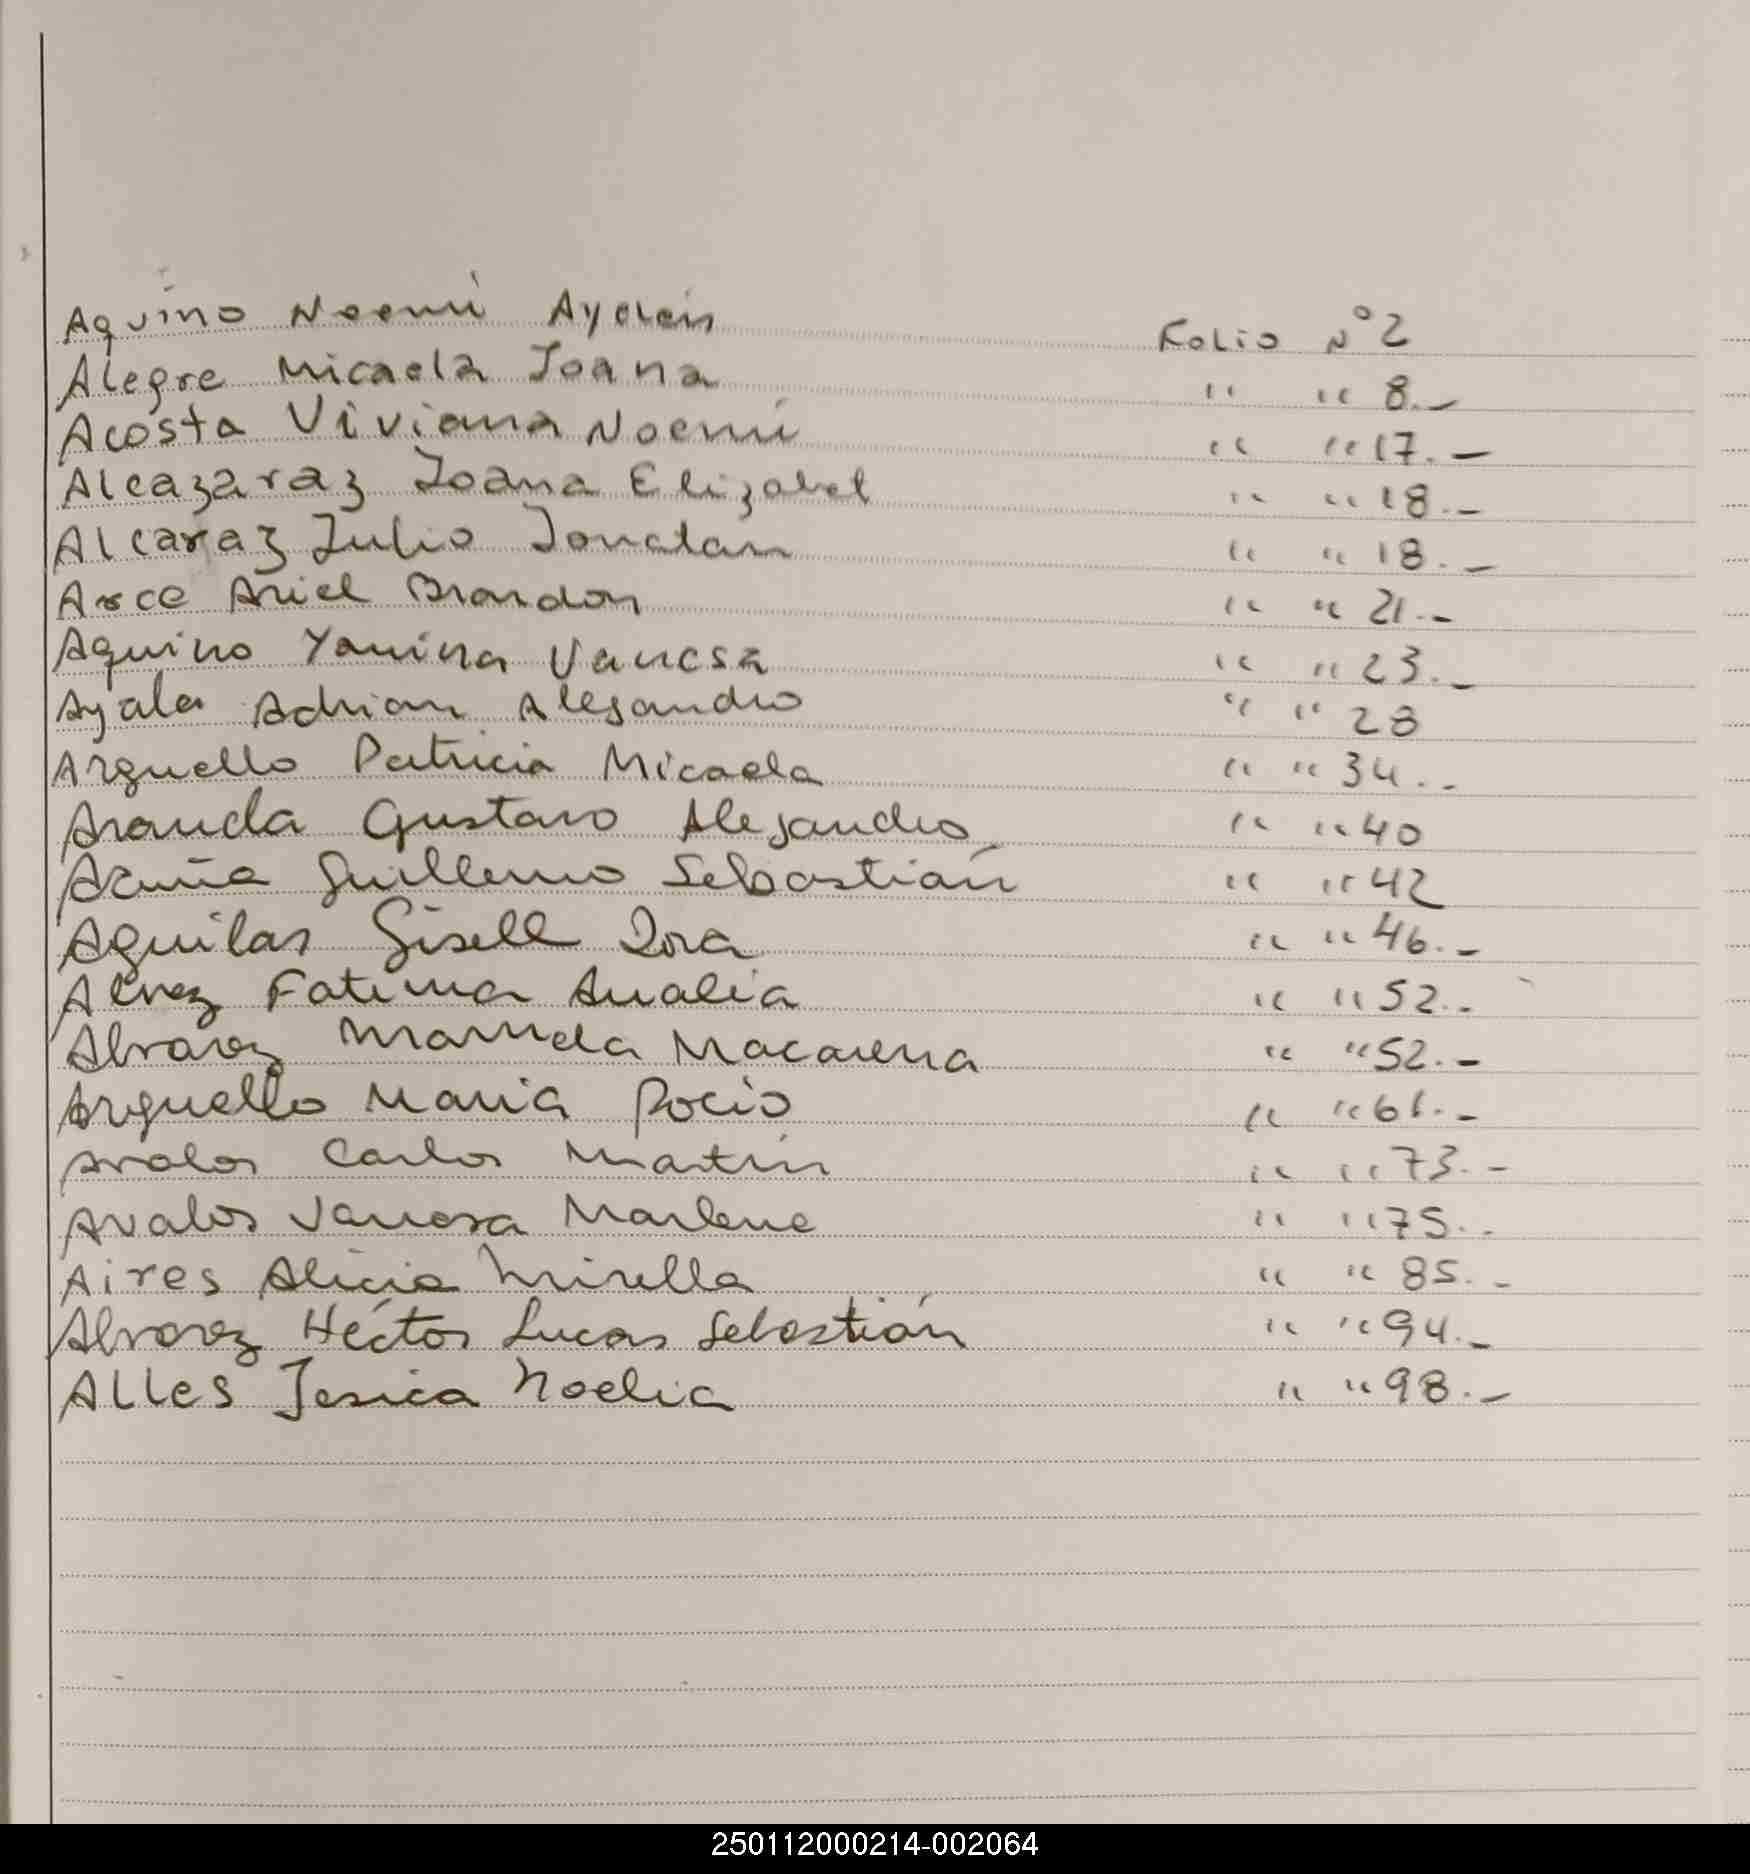 Aquino Noemí Ayelén Folio N° 2
Alegre Micaela Joana " " 8.-
Acosta Viviana Noemí " " 17.-
Alcazaraz Joana Elizabet " " 18.-
Alcaraz Julio Jonatan " " 18.-
Arce Ariel Brandon " " 21.-
Aquino Yanina Vanesa " " 23.-
Ayala Adrian Alejandro " " 28
Arguello Patricia Micaela " " 34.-
Aranda Gustavo Alejandro " " 40
Acuña Guillermo Sebastián " " 42
Aguilar Gisell " " 46.-
Alvez Fatima Analia " " 52.-
Alvarez Macarena " " 52.-
Arguello Maria Rocio " " 61.-
Avalos Carlos Martín " " 73.-
Avalos Vanesa Marlene " " 75.-
Aires Alicia Mirella " " 85.-
Alvarez Héctor Lucas Sebastián " " 94.-
Alles Jesica Noelia " " 98.-
250112000214-002064